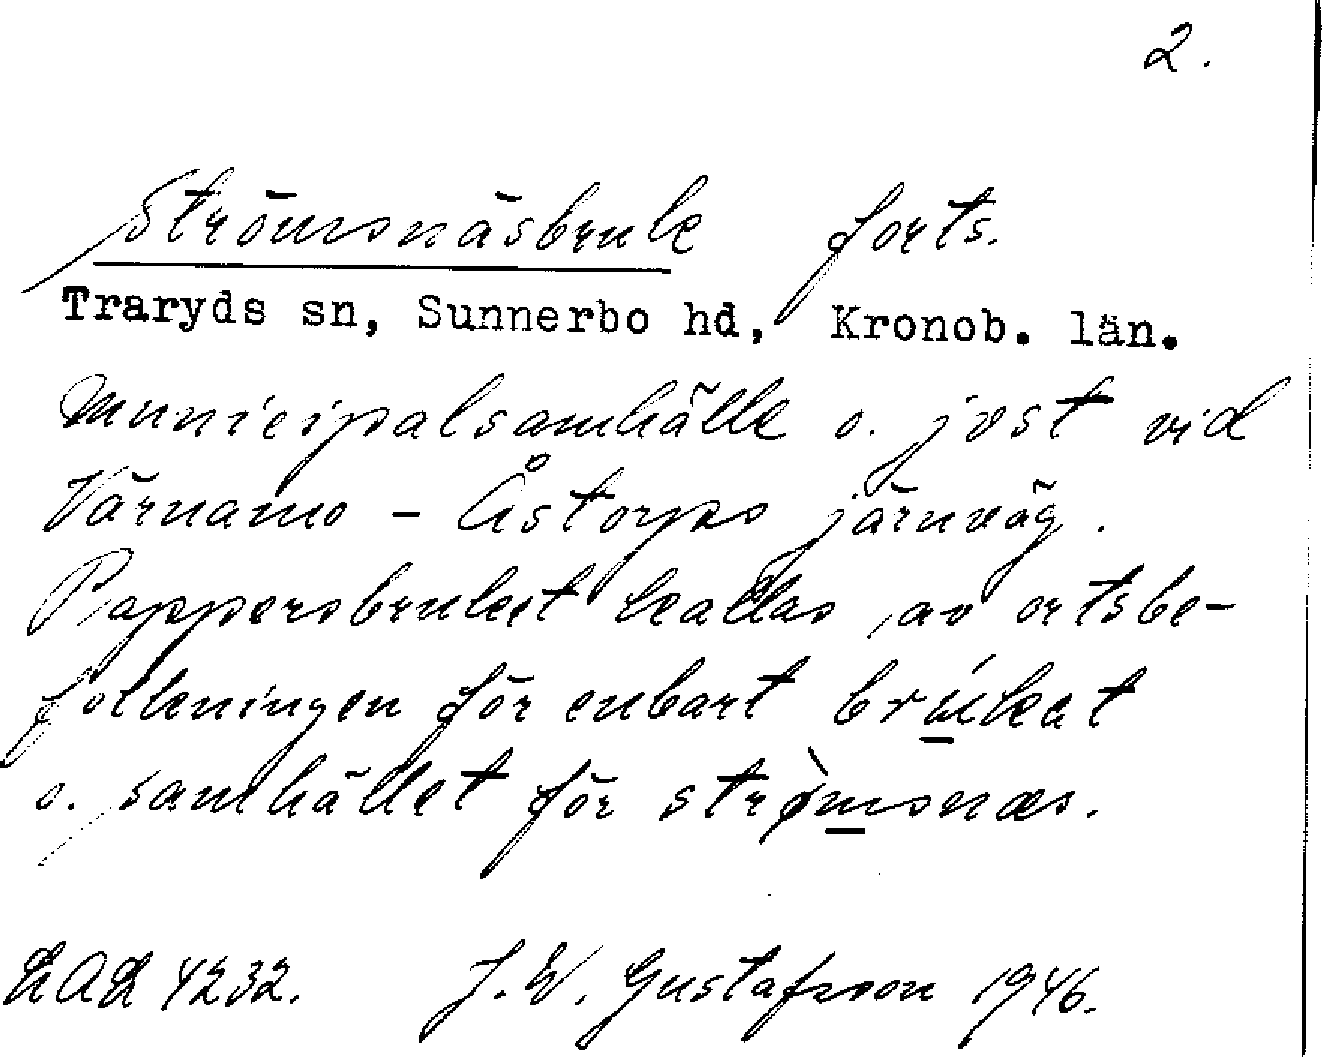 2.
Strömsnäsbruk forts.
Traryds sn, Sunnerbo hd, Kronob. län.
Municipalsamhälle o. jvst vid
Värnamo - Åstorps järnväg.
Pappersbruket kallas av ortsbe-
folkningen för enbart brúkat
o. samhället för strø̀msnæs.
LAL 4232. J. W. Gustafsson 1946.